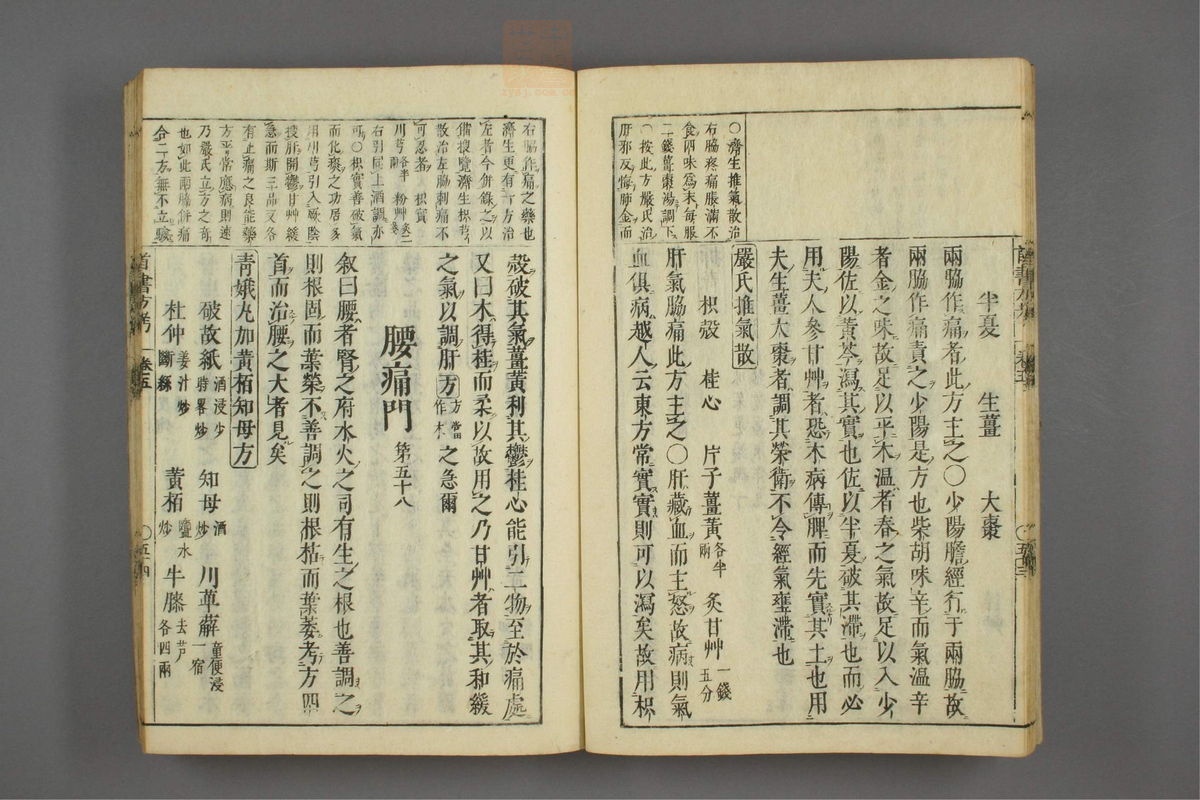 半夏　生薑　大棗
兩脇作痛者此方主之○少陽膽經行于兩脇故
兩脇作痛責之少陽是方也柴胡味辛而氣溫辛
者金之味故足以平木溫者春之氣故足以入少
陽佐以黃芩瀉其實也佐以半夏破其滯也而必
用夫人參甘艸者恐木病傳脾而先實其土也用
夫生薑大棗者調其榮衛不令經氣壅滯也
嚴氏推氣散
枳殼　桂心　片子薑黃各半兩　炙甘艸一錢五分
肝氣脇痛此方主之○肝藏血而主怒故病則氣
血俱病越人云東方常實實則可以瀉矣故用枳
○濟生推氣散治
右脇疼痛脹滿不
食四味爲末每服
二錢薑棗湯調下
○按此方嚴氏治
肝邪反侮肺金而
殼破其氣薑黃利其鬱桂心能引二物至於痛處
又曰木得桂而柔以故用之乃甘艸者取其和緩
之氣以調肝方方當作木之急爾
腰痛門　第五十八
叙曰腰者腎之府水火之司有生之根也善調之
則根固而葉榮不善調之則根枯而葉萎考方四
首而治腰之大者見矣
青娥丸加黃栢知母方
破故紙酒浸少時畧炒　知母酒炒　川萆薢童便浸一宿
杜仲姜汁炒斷絲　黃栢鹽水炒　牛膝去芦各四兩
右脇作痛之藥也
濟生更有一方治
左者今併錄之以
備搜覽濟生枳芎
散治左脇刺痛不
可忍者　枳實
川芎各半兩　粉艸炙二錢
右引同上酒調亦
可○枳實善破氣
而化痰之功居多
用川芎引入厥陰
捜肝開鬱甘艸緩
急而斯三品又各
有止痛之良能藥
方平常應病則速
乃嚴氏立方之奇
也如此兩脇併痛
合二方無不立驗
首書方考　卷五
○五十三
○五十四